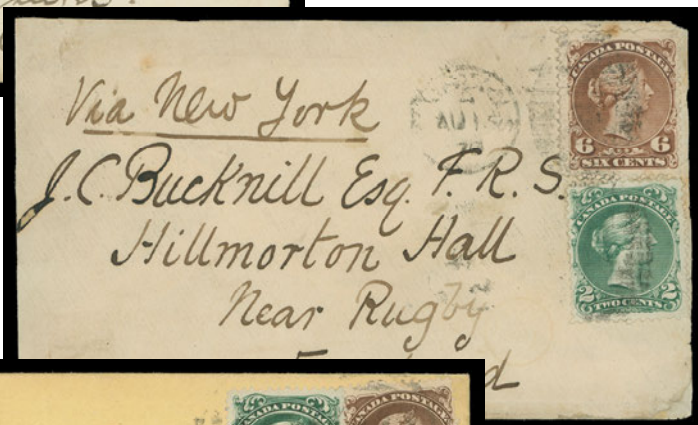 Via New York
J.C. Bucknill Esq. F.R.S.
Hillmorton Hall
Near Rugby
AU 1
CANADA POSTAGE
6 6
SIX CENTS
CANADA POSTAGE
2 2
TWO CENTS
CANADA POSTAGE
CANADA POSTAGE